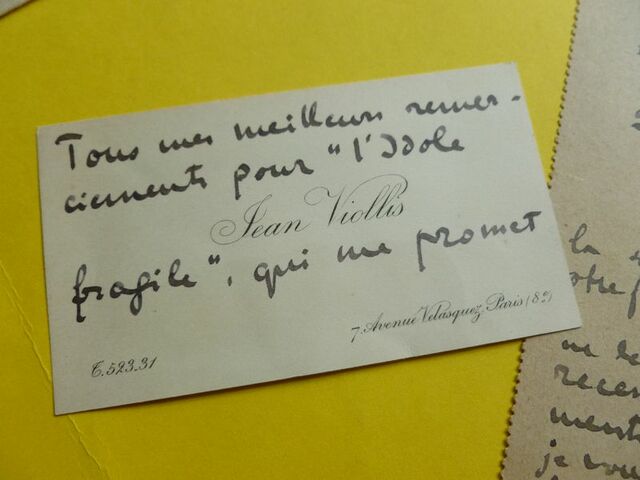 Tous mes meilleurs remer-
ciements pour "l'Idole
Jean Viollis
fragile", qui me promet
7, Avenue Velasquez, Paris (8e)
T. 523.31
la
otre
me
recen
ment
je vou